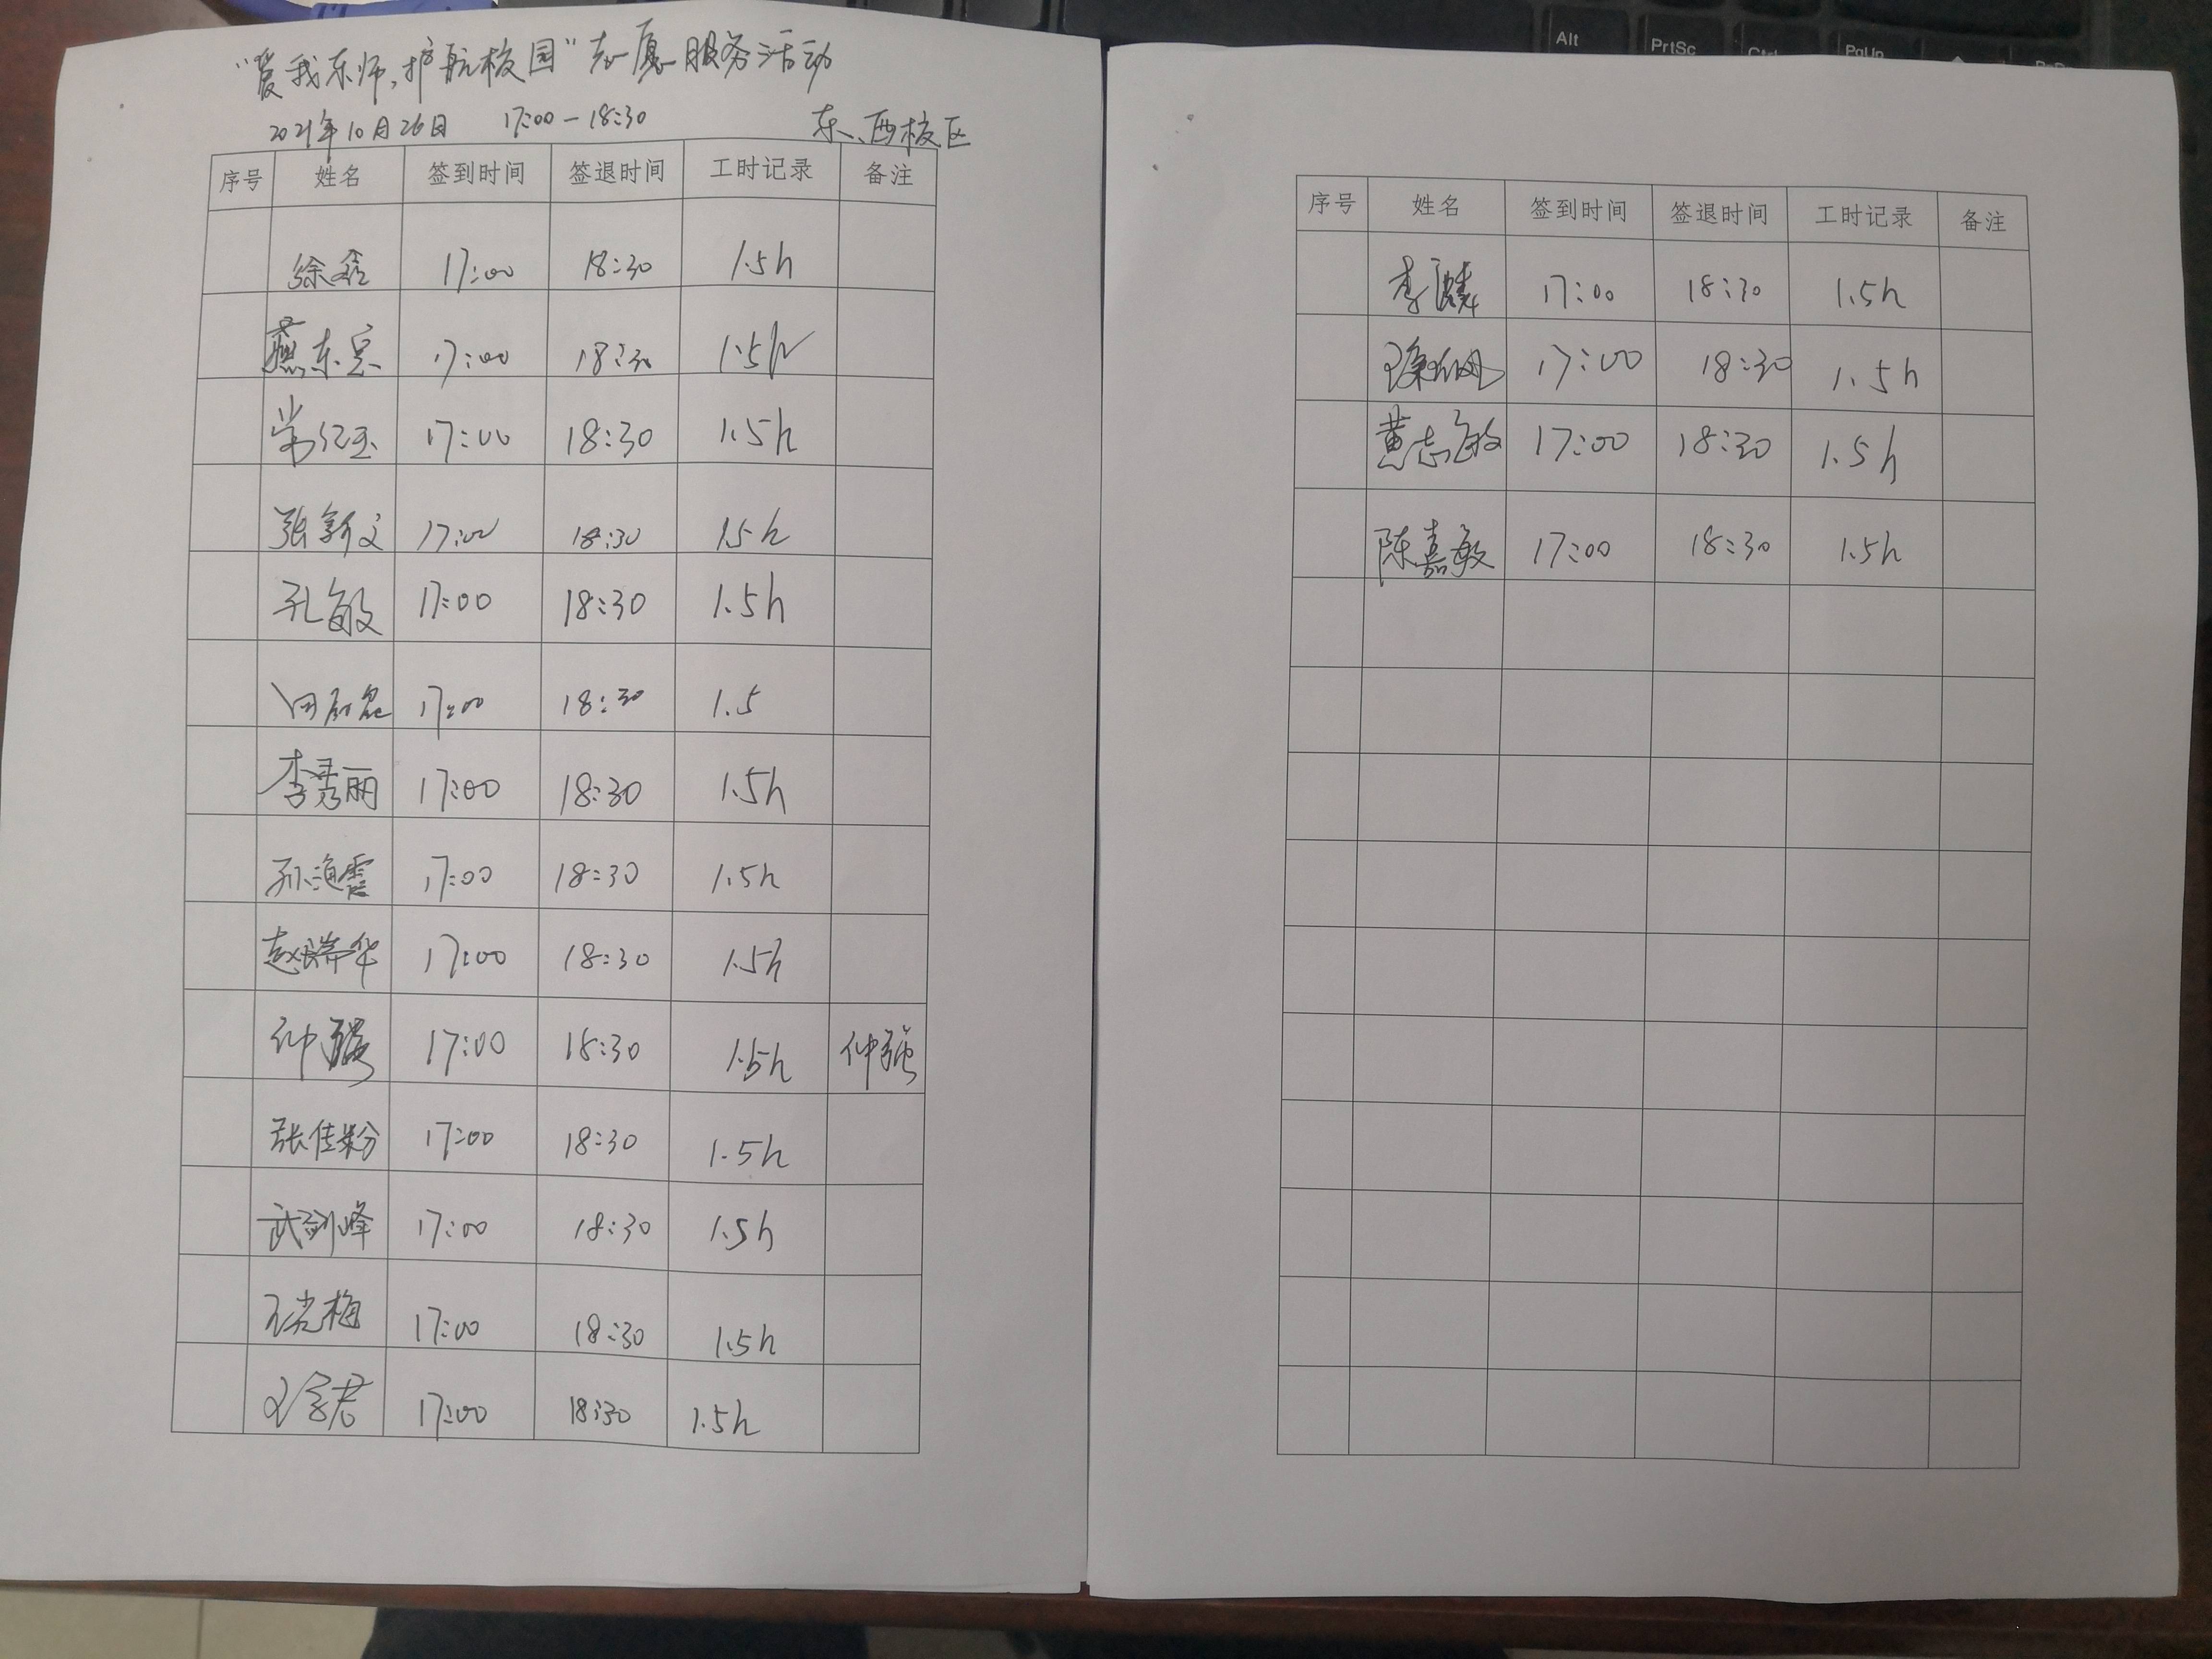 “爱我东师,护航校园”志愿服务活动
2021年10月26日 17:00-18:30 东、西校区
序号 姓名 签到时间 签退时间 工时记录 备注
徐鑫 17:00 18:30 1.5h
燕东 17:00 18:30 1.5h
常红玉 17:00 18:30 1.5h
张新文 17:00 18:30 1.5h
孔敏 17:00 18:30 1.5h
17:00 18:30 1.5
李秀丽 17:00 18:30 1.5h
孙海霞 17:00 18:30 1.5h
赵瑞华 17:00 18:30 1.5h
仲强 17:00 18:30 1.5h 仲强
张佳粉 17:00 18:30 1.5h
武剑峰 17:00 18:30 1.5h
王光梅 17:00 18:30 1.5h
17:00 18:30 1.5h
序号 姓名 签到时间 签退时间 工时记录 备注
李麟 17:00 18:30 1.5h
17:00 18:30 1.5h
黄志敏 17:00 18:30 1.5h
陈嘉敏 17:00 18:30 1.5h
Alt
PrtSc
Ctrl
PgUp